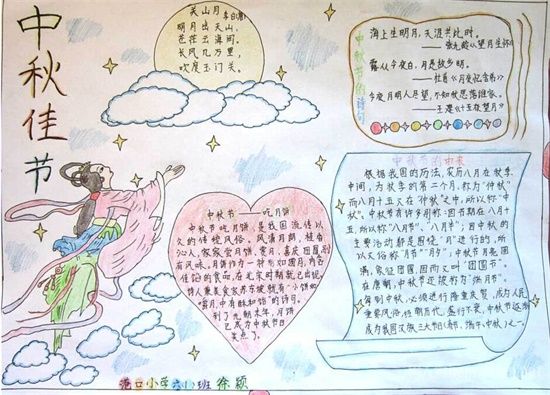 中秋佳节
关山月
李白(唐)
明月出天山,
苍茫云海间。
长风几万里,
吹度玉门关。
中秋节的诗句
海上生明月,天涯共此时。
——张九龄《望月怀
露从今夜白,月是故乡明。
——杜甫《月夜忆舍弟》
今夜月明人尽望,不知秋思落谁家。
——王建《十五夜望月》
中秋节——吃月饼
中秋节吃月饼,是我国流传以
久的传统风俗。风清月朗,桂香
沁人,家家尝月饼,赏月,喜庆团圆,别
有风味。月饼作为一种形如圆月,
记的食品,在北宋时期就已
诗人
嚼月,中有酥和饴"的诗句。
到了元朝末年,月饼
已成为中秋节日
美点了。
中秋节的由来
根据我国的历法,农历八月在秋季
中间,为秋季的第二个月,称为"仲秋"
而八月十五又在"仲秋"之中,所以称"中
秋"。中秋节有许多别称:因节期在八月十
五,所以称"八月节","八月半";因中秋的
主要活动都是围绕"月"进行的,所
以又俗称"月节""月夕";中秋节月亮圆
满,象征团圆,因而又叫"团圆节"。
在唐朝,中秋节还被称为"端月节"。
每到中秋,必须进行隆重庆贺,成为人民
重要风俗,
成为我国汉族三大节(春节、端午、中秋)之一。
港口小学六(1)班 徐颖